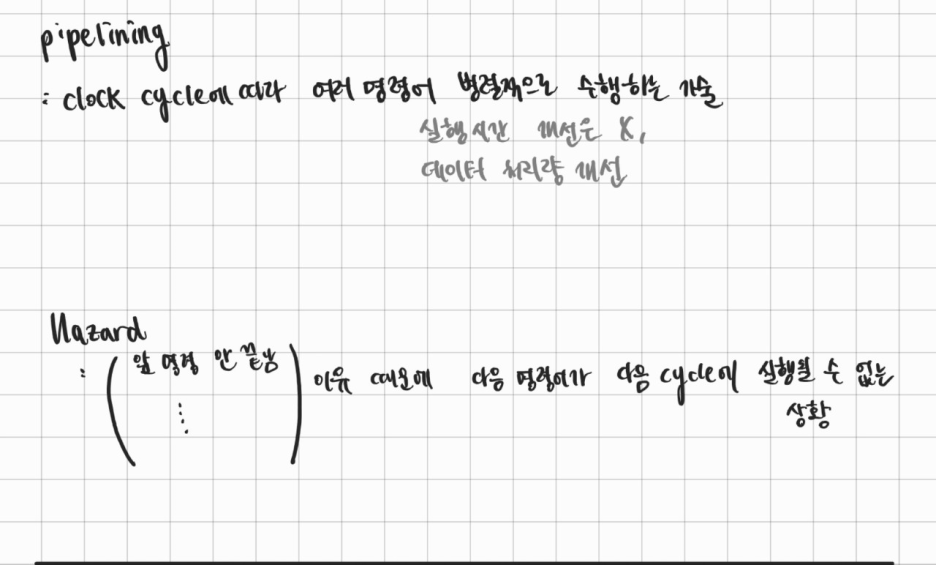 pipelining
: clock cycle에 따라 여러 명령어 병렬적으로 수행하는 기술
실행시간 개선은 X,
데이터 처리량 개선
Hazard
: ( 앞 명령 안 끝남 ⋮ ) 이유 때문에 다음 명령어가 다음 cycle에 실행될 수 없는
상황